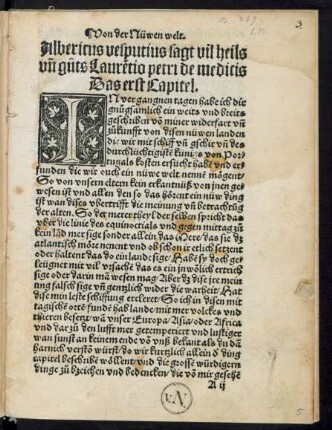 Von der Nüwen welt.
Albericus vesputius sagt vil heils
vñ gůts Laurētio petri de medicis
Das erst Capitel.
IN vergangnen tagen habe ich dir
gnůgsamlich ein weits und breits
geschriben võ miner widerfart vñ
zůkunfft von disen nüwen landen
die wir mit schiff vñ gschir vñ des
durchlüchtigistē künigs von Por
tugals kosten ersůcht habē und er
funden die wir ouch ein nüwe welt nennē mögent
So von unsern eltern kein erkantnüß von jnen ge
wesen ist und allen den so das hörent ein nüw ding
ist wan dises übertrifft die meinung vñ betrachtūg
der alten. So der merer theyl der selben spricht das
über die linie des equinoctials und gegen mittag zů
kein lād mer sige sonder allein das Mere das sie dz
atlantisch möre nenent und ob schon ir etlich setzent
oder haltent das do ein lande sige/ Habē sy doch ge
leügnet mit vil vrsache das es ein inwōlich ertrich
sige oder darin mā wesen mag Aber dz dise jre mein
ung falsch sige vñ gentzlich wider die warheit/ Hat
dise min leste schiffung ercleret So ich in disen mit
tagische ortē fundē hab lande mit mer volckes und
thieren besetzt wā unser Europa/ Asia/ oder Africa
und dar zů den lufft mer getemperiert und lustiger
wan sunst an keinem ende võ uns bekant als du dā
harnach verstō würst/ do wir kurtzlich allein d ding
capitel beschribē wöllent und die grossē würdigern
dinge zů bzeichen und bedencken/ die võ mir gesehē
A ij
3
5